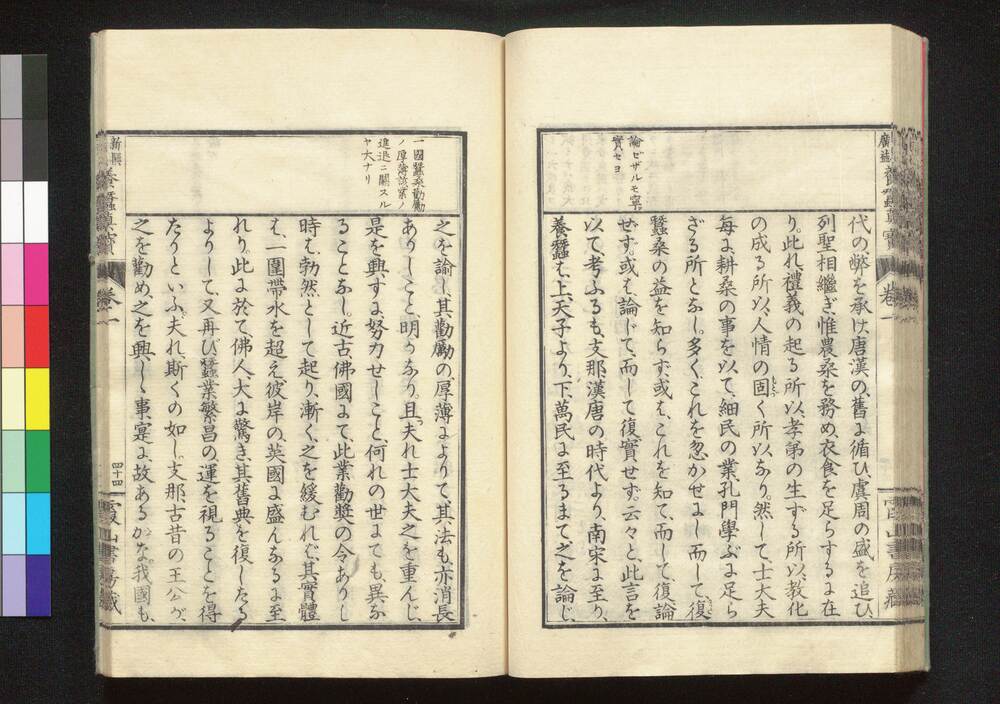 論ビザルモ寧
實セヨ
代の弊を承け、唐漢の舊よ循ひ、虞周の盛を追ひ、
列聖相繼ぎ、惟農桑を務め、衣食を足らするよ在
り。此れ禮義の起る所以、孝弟の生ずる所以、教化
の成る所以、人情の固く所以なり。然して、士大夫
毎よ耕桑の事を以て、細民の業孔門學ぶよ足ら
ざる所となし。多く、これを忽かせよし而して、復
蠶桑の益を知らず、或は、これを知て、而して、復論
せず。或は、論じて、而して復、實せず。云々と、此言を
以て、考ふるも、支那、漢唐の時代より、南宋よ至り、
養蠶は、上、天子より、下、萬民よ至るまで、之を論じ、
一國蠶桑勸勵
ノ厚薄該業ノ
進退ニ關スル
ヤ大ナリ
之を諭し、其勸勵の厚薄よよりて、其法も亦消長
ありしこと、明かなり。且、夫れ士大夫之を重んじ、
是を興すよ、努力せしこと、何れの世までも、異な
ることなし。近古、佛國よて、此業勸奬の令ありし
時は、勃然として起り、漸く、之を緩むれば、其實體
は、一圍帶水を超え、彼岸の、英國よ盛んなるよ至
れり。此よ於て、佛人、大よ驚き、其舊典を復したる
よりして、又再び、蠶業繁昌の、運を視ることを得
たりといふ。夫れ、斯くの如し。支那、古昔の王公が、
之を勸め、之を興しゝ事、寔よ、故あるかな。我國も、
卷一
四十四
霞山書房藏